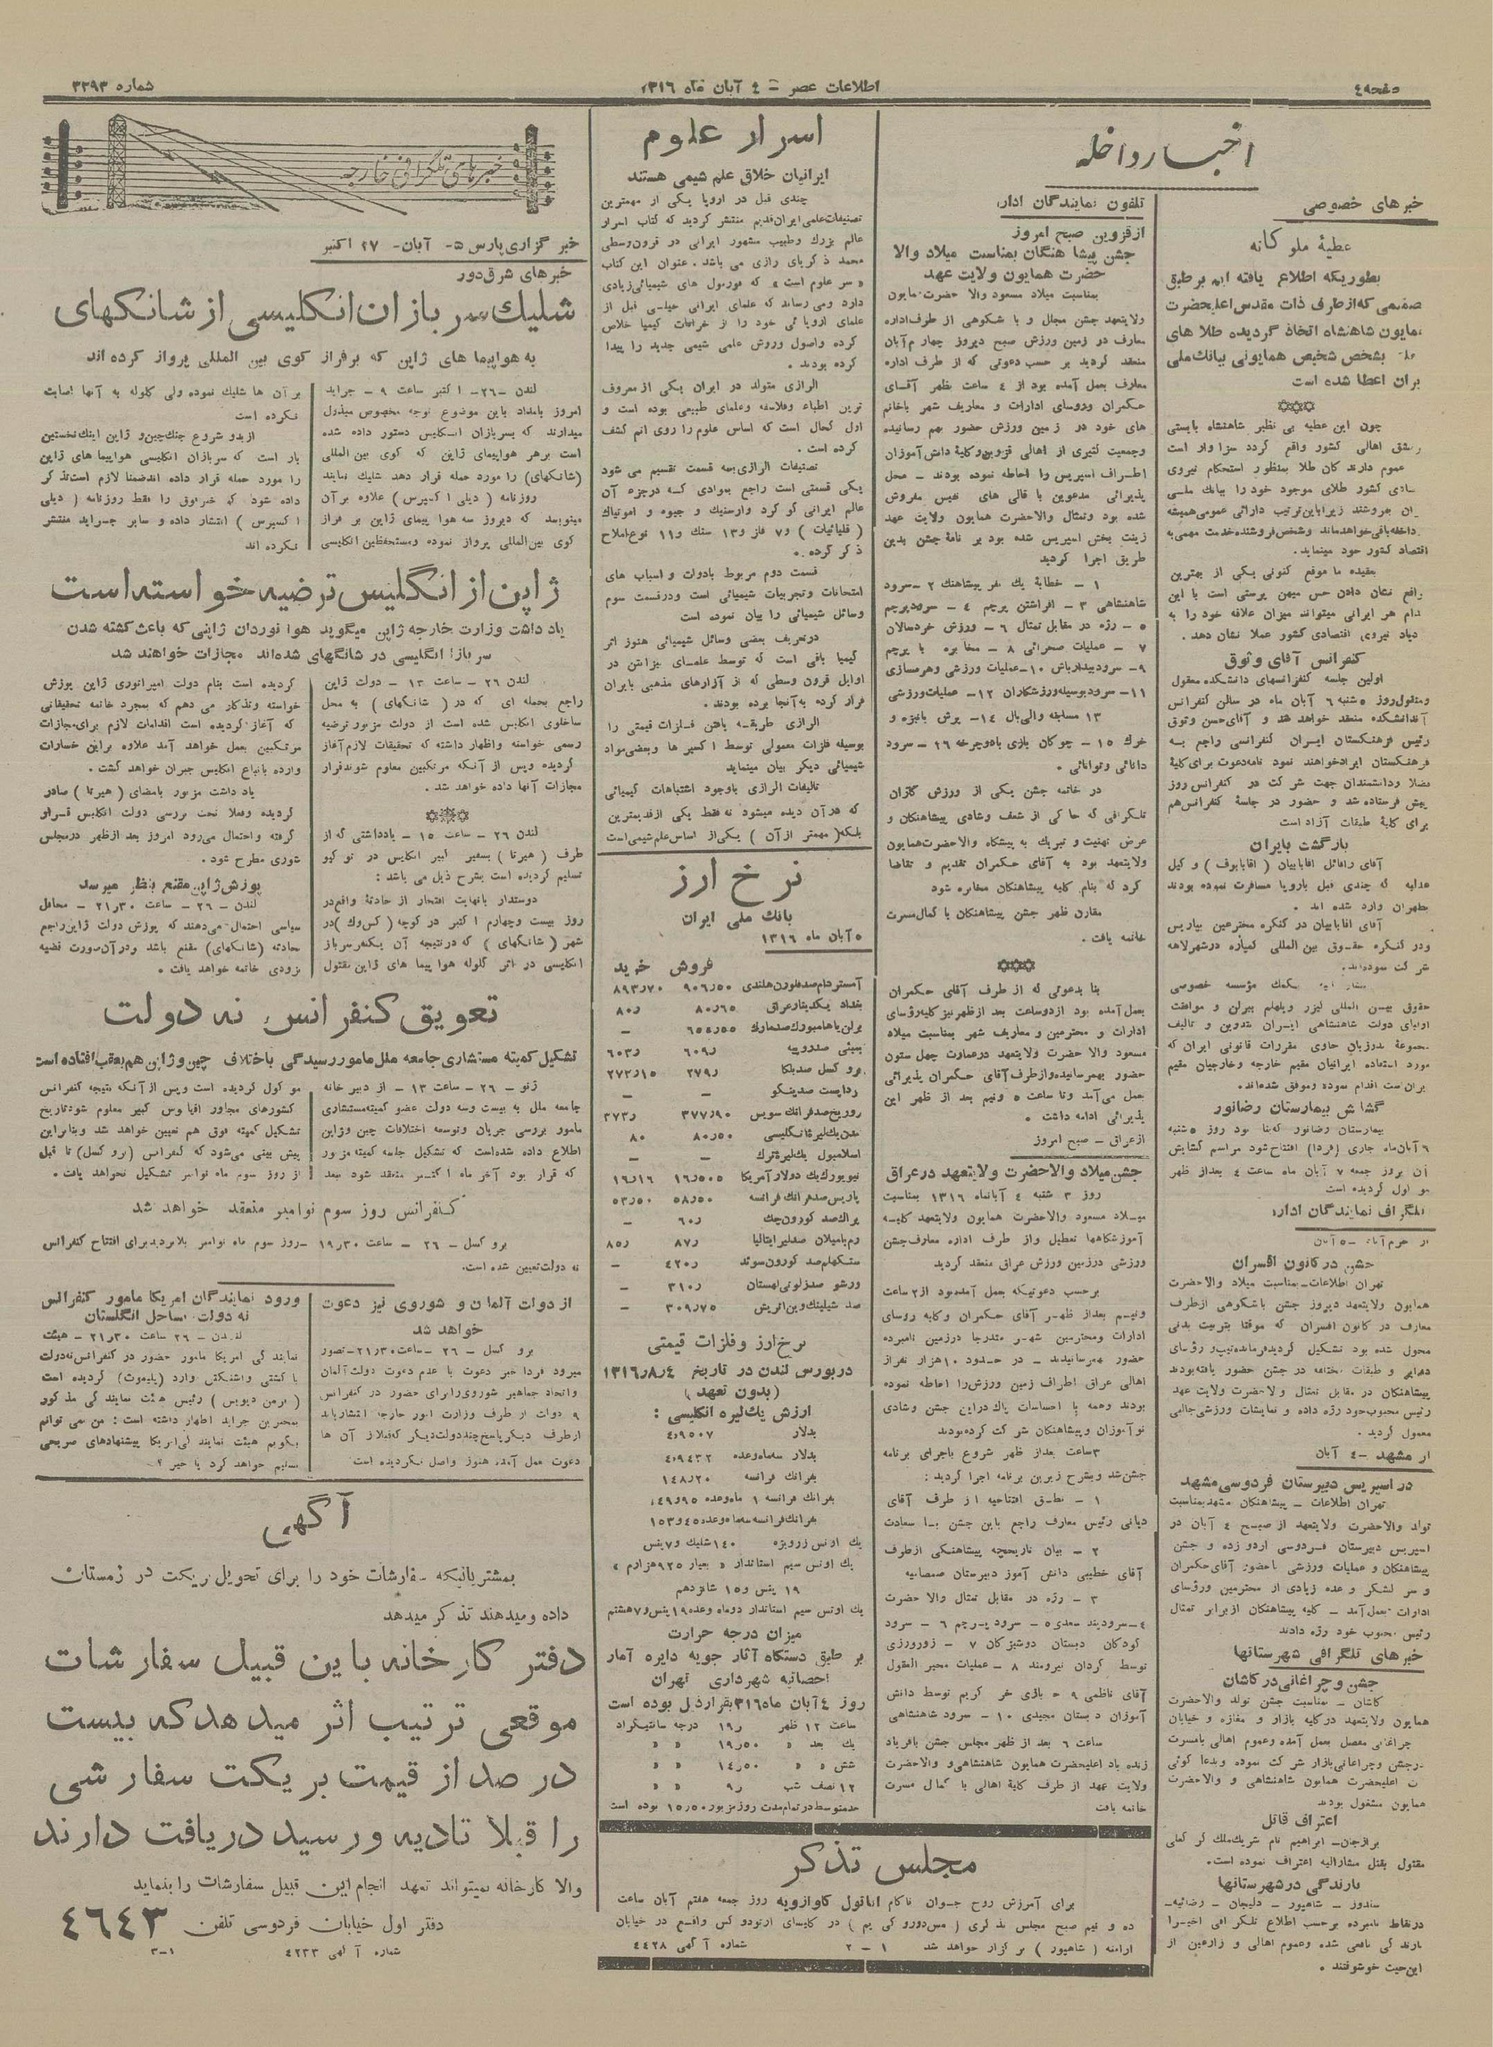 صفحه ٤
اطلاعات عصر – ٤ آبان ماه ١٣١٦
شماره ٣٣٩٣
اخبار داخله
خبرهای خصوصی
عطیهٔ ملوکانه
بطوریکه اطلاع یافته ایم بر طبق
که از طرف ذات مقدس اعلیحضرت
شاهنشاه اتخاذ گردیده طلا های
بشخص شخیص همایونی ببانك ملی
اعطا شده است
چون این عطیه بی نظیر شاهنشاه بایستی
اهالی کشور واقع گردد سزاوار است
عموم دارندگان طلا بمنظور استحکام نیروی
کشور طلای موجود خود را ببانك ملی
بفروشند زیرا باین ترتیب دارائی عمومی همیشه
باقی خواهد ماند و شخص فروشنده خدمت مهمی به
اقتصاد کشور خود مینماید.
بعقیده ما موقع کنونی یکی از بهترین
نشان دادن حس میهن پرستی است با این
هر ایرانی میتواند میزان علاقه خود را به
نیروی اقتصادی کشور عملا نشان دهد.
کنفرانس آقای وثوق
اولین جلسه کنفرانسهای دانشکده معقول
ومنقول روز ٥ شنبه ٦ آبان ماه در سالن کنفرانس
دانشکده منعقد خواهد شد و آقای حسن وثوق
رئیس فرهنگستان ایران کنفرانسی راجع به
فرهنگستان ایراد خواهند نمود نامه دعوت برای کلیهٔ
ودانشمندان جهت شرکت در کنفرانس روز
پیش فرستاده شد و حضور در جلسهٔ کنفرانس هم
برای کلیهٔ طبقات آزاد است
بازگشت بایران
آقای رافائل آقابابیان (آقابایوف) وکیل
عدلیه که چندی قبل باروپا مسافرت نموده بودند
بطهران وارد شده اند.
آقای آقابابیان در کنگره مخترعین بپاریس
ودر کنگره حقوق بین المللی کمپاره در شهر لاهه
شرکت نموده اند.
مؤسسه خصوصی
حقوق بین المللی لیزر ویلهلم ببرلن و موافقت
اولیای دولت شاهنشاهی ایران بتدوین و تالیف
حاوی مقررات قانونی ایران که
مورد استفاده ایرانیان مقیم خارجه وخارجیان مقیم
ایران است اقدام نموده وموفق شده اند.
گشایش بیمارستان رضانور
بیمارستان رضانور که بنا بود روز ٥ شنبه
٦ آبان ماه جاری (فردا) افتتاح شود مراسم گشایش
آن بروز جمعه ٧ آبان ماه ساعت ٤ بعد از ظهر
موکول گردیده است
تلگرافی نمایندگان اداره
از خرم آباد – ٥ آبان
جشن در کانون افسران
تهران اطلاعات – بمناسبت میلاد والاحضرت
همایون ولایتعهد دیروز جشن باشکوهی از طرف
معارف در کانون افسران که موقتا بتربیت بدنی
محول شده بود تشکیل گردید فرمانده تیپ و رؤسای
دوایر و طبقات مختلفه در جشن حضور یافته بودند
پیشاهنگان در مقابل تمثال والاحضرت ولایت عهد
رئیس محبوب خود رژه داده و نمایشات ورزشی جالبی
معمول گردید.
از مشهد – ٤ آبان
در اسپریس دبیرستان فردوسی مشهد
تهران اطلاعات – پیشاهنگان مشهد بمناسبت
تولد والاحضرت ولایتعهد از صبح ٤ آبان در
اسپریس دبیرستان فردوسی اردو زده و جشن
پیشاهنگان و عملیات ورزشی با حضور آقای حکمران
و سر لشگر و عده زیادی از محترمین ورؤسای
ادارات بعمل آمد – کلیه پیشاهنگان از برابر تمثال
رئیس محبوب خود رژه دادند
خبرهای تلگرافی شهرستانها
جشن و چراغانی در کاشان
کاشان – بمناسبت جشن تولد والاحضرت
همایون ولایتعهد در کلیه بازار و مغازه و خیابان
چراغانی مفصل بعمل آمده وعموم اهالی بامسرت
در جشن و چراغانی بازار شرکت نموده وبدعا گوئی
اعلیحضرت همایون شاهنشاهی و والاحضرت
همایون مشغول بودند
اعتراف قاتل
برازجان – ابراهیم نام شریك ملك کر کمالی
مقتول بقتل مشارالیه اعتراف نموده است.
بارندگی در شهرستانها
سندور – شاهپور – دلیجان – رضائیه –
درنقاط نامبرده برحسب اطلاع تلگرافی اخیرا
بارندگی نافعی شده وعموم اهالی و زارعین از
این حیث خوشوقتند.
تلفون نمایندگان اداره
از قزوین صبح امروز
جشن پیشاهنگان بمناسبت میلاد والا
حضرت همایون ولایت عهد
بمناسبت میلاد مسعود والا حضرت همایون
ولایتعهد جشن مجلل و با شکوهی از طرف اداره
معارف در زمین ورزش صبح دیروز چهارم آبان
منعقد گردید بر حسب دعوتی که از طرف اداره
معارف بعمل آمده بود از ٤ ساعت بظهر آقای
حکمران ورؤسای ادارات و معاریف شهر باخانم
های خود در زمین ورزش حضور بهم رسانیده
وجمعیت کثیری از اهالی قزوین وکلیهٔ دانش آموزان
اطراف اسپریس را احاطه نموده بودند – محل
پذیرائی مدعوین با قالی های نفیس مفروش
شده بود وتمثال والاحضرت همایون ولایت عهد
زینت بخش اسپریس شده بود برنامهٔ جشن بدین
طریق اجرا گردید
١ – خطابهٔ یك نفر پیشاهنك ٢ – سرود
شاهنشاهی ٣ – افراشتن پرچم ٤ – سرود پرچم
٥ – رژه در مقابل تمثال ٦ – ورزش خردسالان
٧ – عملیات صحرائی ٨ – مخابره با پرچم
٩ – سرود بیدار باش ١٠ – عملیات ورزشی وهرمسازی
١١ – سرود بوسیله ورزشکاران ١٢ – عملیات ورزشی
١٣ مسابقه والی بال ١٤ – پرش بانیزه و
خرك ١٥ – چوگان بازی بادوچرخه ١٦ – سرود
دانائی وتوانائی.
در خاتمه جشن یکی از ورزش کاران
تلگرافی که حاکی از شعف وشادی پیشاهنگان و
عرض تهنیت و تبریك به پیشگاه والاحضرت همایون
ولایتعهد بود به آقای حکمران تقدیم و تقاضا
کرد که بنام کلیه پیشاهنگان مخابره شود
مقارن ظهر جشن پیشاهنگان با کمال مسرت
خاتمه یافت.
بنا بدعوتی که از طرف آقای حکمران
بعمل آمده بود از دوساعت بعد از ظهر نیز کلیه رؤسای
ادارات و محترمین و معاریف شهر بمناسبت میلاد
مسعود والا حضرت ولایتعهد درعمارت چهل ستون
حضور بهمرسانیده واز طرف آقای حکمران پذیرائی
بعمل می آمد وتا ساعت ٥ ونیم بعد از ظهر این
پذیرائی ادامه داشت.
از عراق – صبح امروز
جشن میلاد والاحضرت ولایتعهد در عراق
روز ٣ شنبه ٤ آبانماه ١٣١٦ بمناسبت
میلاد مسعود والاحضرت همایون ولایتعهد کلیه
آموزشگاهها تعطیل واز طرف اداره معارف جشن
ورزشی در زمین ورزش عراق منعقد گردید
برحسب دعوتیکه بعمل آمده بود از ٢ ساعت
ونیم بعد از ظهر آقای حکمران وکلیه رؤسای
ادارات ومحترمین شهر متدرجا درزمین نامبرده
حضور بهمرسانیدند – در حدود ١٠ هزار نفر از
اهالی عراق اطراف زمین ورزش را احاطه نموده
بودند وهمه با احساسات پاك در این جشن وشادی
نوآموزان وپیشاهنگان شرکت کرده بودند
٣ ساعت بعد از ظهر شروع باجرای برنامه
جشن شد وبشرح زیرین برنامه اجرا گردید:
١ – نطق افتتاحیه از طرف آقای
دیانی رئیس معارف راجع باین جشن با سعادت
٢ – بیان تاریخچه پیشاهنگی از طرف
آقای خطیبی دانش آموز دبیرستان صمصامیه
٣ – رژه در مقابل تمثال والا حضرت
٤ – سرود پند سعدی ٥ – سرود پرچم ٦ – سرود
کودکان دبستان دوشیزگان ٧ – زورورزی
توسط گردان نیرومند ٨ – عملیات محیر العقول
آقای ناظمی ٩ – بازی توسط دانش
آموزان دبستان مجیدی ١٠ – سرود شاهنشاهی
ساعت ٦ بعد از ظهر مجلس جشن بافریاد
زنده باد اعلیحضرت همایون شاهنشاهی و والاحضرت
ولایت عهد از طرف کلیهٔ اهالی با کمال مسرت
خاتمه یافت
اسرار علوم
ایرانیان خلاق علم شیمی هستند
چندی قبل در اروپا یکی از مهمترین
تصنیفات علمی ایران قدیم منتشر گردید که کتاب اسرار
عالم بزرك وطبیب مشهور ایرانی در قرون وسطی
محمد ذکریای رازی می باشد. عنوان این کتاب
«سر علوم است» که فورمول های شیمیائی زیادی
دارد ومی رساند که علمای ایرانی خیلی قبل از
علمای اروپائی خود را از خرافات کیمیا خلاص
کرده واصول وروش علمی شیمی جدید را پیدا
کرده بودند.
الرازی متولد در ایران یکی از معروف
ترین اطباء وفلاسفه وعلمای طبیعی بوده است و
اول کسی است که اساس علوم را روی اتم کشف
کرده است.
تصنیفات الرازی بسه قسمت تقسیم می شود
یکی قسمتی است راجع بموادی که درجزء آن
عالم ایرانی گوگرد وارسنیك و جیوه و امونیاك
(قلیائیات) و ٧ فلز و ١٣ سنك و ١١ نوع املاح
ذکر کرده.
قسمت دوم مربوط بادوات و اسباب های
امتحانات وتجربیات شیمیائی است ودرقسمت سوم
وسائل شیمیائی را بیان نموده است
درتعریف بعضی وسائل شیمیائی هنوز اثر
کیمیا باقی است که توسط علمای بیزانتن در
اوایل قرون وسطی که از آزارهای مذهبی بایران
فرار کرده به آنجا برده بودند.
الرازی طریقه یافتن فلزات قیمتی را
بوسیله فلزات معمولی توسط اکسیر ها وبعضی مواد
شیمیائی دیگر بیان مینماید
تالیفات الرازی باوجود اشتباهات کیمیائی
که در آن دیده میشود نه فقط یکی از قدیمترین
بلکه (مهمتر از آن) یکی از اساس علم شیمی است
نرخ ارز
بانك ملی ایران
٥ آبان ماه ١٣١٦
فروش خرید
آمستردام صد فلورن هلندی ٩٠٦٫٥٠ ٨٩٣٫٧٠
بغداد یکدینار عراق ٨٠٫٦٥ ٨٠٫
برلن یا هامبورك صد مارك ٦٥٤٫٥٥ –
بمبئی صد روپیه ٦٠٩٫ ٦٠٣٫
بروکسل صد بلگا ٢٧٩٫ ٢٧٢٫١٥
بوداپست صد پنگو – –
زوریخ صد فرانك سویس ٣٧٧٫٩٠ ٣٧٣٫
لندن یك لیره انگلیسی ٨٠٫٥٠ ٨٠
اسلامبول یك لیره ترك – –
نیویورك یك دولار آمریکا ١٦٫٥٠٥ ١٦٫١٦
پاریس صد فرانك فرانسه ٥٨٫٥٠ ٥٣٫٥٠
پراك صد کورون چك ٦٠٫ –
رم یا میلان صد لیر ایتالیا ٨٧٫ ٨٥٫
ستکهلم صد کورون سوئد ٤٢٠٫ –
ورشو صد زلوتی لهستان ٣١٠٫ –
صد شیلینك وین اتریش ٣٠٩٫٧٥ –
نرخ ارز وفلزات قیمتی
در بورس لندن در تاریخ ١٣١٦٫٨٫٤
(بدون تعهد)
ارزش یك لیره انگلیسی:
بدلار ٤٫٩٥٠٧
بدلار سه ماه وعده ٤٫٩٤٣٢
بفرانك فرانسه ١٤٨٫٢٠
بفرانك فرانسه ١ ماه وعده ١٤٩٫٩٥
بفرانك فرانسه سه ماه وعده ١٥٣٫٤٥
یك اونس زر ویژه ١٤٠ شلیك و ٧ پنس
یك اونس سیم استاندارد «بعیار ٩٢٥ هزارم»
١٩ پنس و ١٥ شانزدهم
یك اونس سیم استاندارد دوماه وعده ١٩ پنس و ٧ هشتم
میزان درجه حرارت
بر طبق دستگاه آثار جویه دایره آمار
احصائیه شهرداری تهران
روز ٤ آبان ماه ١٣١٦ بقرار ذیل بوده است
ساعت ١٢ ظهر ١٩٫ درجه سانتیگراد
یك بعد « ١٩٫٥٠ « «
شش « « ١٤٫٥٠ « «
١٢ نصف شب ٩٫ « «
حد متوسط در تمام مدت روز مزبور ١٥٫٥٠ بوده است
مجلس تذکر
برای آمرزش روح جوان ناکام اناتول کاوازویه روز جمعه هفتم آبان ساعت
ده و نیم صبح مجلس تذکری (مس دورو کی یم) در کلیسای ارتودوکس واقع در خیابان
ارامنه (شاهپور) برگزار خواهد شد ١ – ٢ شماره آگهی ٤٤٢٨
خبرهای تلگرافی خارجه
خبرگزاری پارس ٥ – آبان – ٢٧ اکتبر
خبرهای شرق دور
شلیك سربازان انگلیسی از شانگهای
به هواپیما های ژاپن که بر فراز کوی بین المللی پرواز کرده اند
لندن – ٢٦ – اکتبر ساعت ٩ – جراید
امروز بامداد باین موضوع توجه مخصوص مبذول
میدارند که بسربازان انگلیس دستور داده شده
است برهر هواپیمای ژاپن که کوی بین المللی
(شانگهای) را مورد حمله قرار دهد شلیك نمایند
روزنامه (دیلی اکسپرس) علاوه بر آن
مینویسد که دیروز سه هوا پیمای ژاپن بر فراز
کوی بین المللی پرواز نموده ومستحفظین انگلیسی
بر آن ها شلیك نموده ولی گلوله به آنها اصابت
نکرده است
از بدو شروع جنك چین و ژاپن اینك نخستین
بار است که سربازان انگلیسی هواپیما های ژاپن
را مورد حمله قرار داده اند ضمنا لازم است تذکر
داده شود که خبر فوق را فقط روزنامه (دیلی
اکسپرس) انتشار داده و سایر جراید منتشر
نکرده اند
ژاپن از انگلیس ترضیه خواسته است
یاد داشت وزارت خارجه ژاپن میگوید هوا نوردان ژاپنی که باعث کشته شدن
سرباز انگلیسی در شانگهای شده اند مجازات خواهند شد
لندن ٢٦ – ساعت ١٣ – دولت ژاپن
راجع بحمله ای که در (شانگهای) به محل
ساخلوی انگلیس شده است از دولت مزبور ترضیه
رسمی خواسته واظهار داشته که تحقیقات لازم آغاز
گردیده وپس از آنکه مرتکبین معلوم شوند قرار
مجازات آنها داده خواهد شد.
لندن ٢٦ – ساعت ١٥ – یادداشتی که از
طرف (هیرتا) بسفیر کبیر انگلیس در توکیو
تسلیم گردیده است بشرح ذیل می باشد:
دوستدار بانهایت افتخار از حادثهٔ واقع در
روز بیست وچهارم اکتبر در کوچه (کسوك) در
شهر (شانگهای) که در نتیجه آن یکنفر سرباز
انگلیسی در اثر گلوله هوا پیما های ژاپن مقتول
گردیده است بنام دولت امپراتوری ژاپن پوزش
خواسته وتذکار می دهم که بمجرد خاتمه تحقیقاتی
که آغاز گردیده است اقدامات لازم برای مجازات
مرتکبین بعمل خواهد آمد علاوه براین خسارات
وارده باتباع انگلیس جبران خواهد گشت.
یاد داشت مزبور بامضای (هیرتا) صادر
گردیده وفعلا تحت بررسی دولت انگلیس قرار
گرفته واحتمال می رود امروز بعد از ظهر در مجلس
شوری مطرح شود.
پوزش ژاپن مقنع بنظر میرسد
لندن – ٢٦ – ساعت ٢١٫٣٠ – محافل
سیاسی احتمال می دهند که پوزش دولت ژاپن راجع
حادثه (شانگهای) مقنع باشد ودر آن صورت قضیه
بزودی خاتمه خواهد یافت.
تعویق کنفرانس نه دولت
تشکیل کمیته مستشاری جامعه ملل مامور رسیدگی باختلاف چین وژاپن هم بعقب افتاده است
ژنو – ٢٦ – ساعت ١٣ – از دبیر خانه
جامعه ملل به بیست وسه دولت عضو کمیته مستشاری
مامور بررسی جریان وتوسعه اختلافات چین وژاپن
اطلاع داده شده است که تشکیل جلسه کمیته مزبور
که قرار بود آخر ماه اکتبر منعقد شود ببعد
موکول گردیده است وپس از آنکه نتیجه کنفرانس
کشورهای مجاور اقیانوس کبیر معلوم شود تاریخ
تشکیل کمیته فوق هم تعیین خواهد شد وبنابراین
پیش بینی می شود که کنفرانس (بروکسل) تا قبل
از روز سوم ماه نوامبر تشکیل نخواهد یافت.
کنفرانس روز سوم نوامبر منعقد خواهد شد
بروکسل – ٢٦ – ساعت ١٩٫٣٠ – روز سوم ماه نوامبر بلاتردید برای افتتاح کنفرانس
نه دولت تعیین شده است.
از دولت آلمان و شوروی نیز دعوت
خواهد شد
بروکسل – ٢٦ – ساعت ٢١٫٣٠ – تصور
میرود فردا خبر دعوت با عدم دعوت دولت آلمان
واتحاد جماهیر شوروی برای حضور در کنفرانس
٩ دولت از طرف وزارت امور خارجه انتشار یابد
از طرف دیگر پاسخ چند دولت دیگر که قبلا از آن ها
دعوت بعمل آمده هنوز واصل نگردیده است
ورود نمایندگان امریکا مامور کنفرانس
نه دولت بساحل انگلستان
لندن – ٢٦ ساعت ٢١٫٣٠ – هیئت
نمایندگی امریکا مامور حضور در کنفرانس نه دولت
با کشتی واشنگتن وارد (پلیموت) گردیده است
(نرمن دیویس) رئیس هیئت نمایندگی مذکور
بمخبرین جراید اظهار داشته است: من نمی توانم
بگویم هیئت نمایندگی امریکا پیشنهادهای صریحی
تسلیم خواهد کرد یا خیر؟
آگهی
بمشتریانیکه سفارشات خود را برای تحویل بریکت در زمستان
داده و میدهند تذکر میدهد
دفتر کارخانه باین قبیل سفارشات
موقعی ترتیب اثر میدهد که بیست
درصد از قیمت بریکت سفارشی
را قبلا تادیه و رسید دریافت دارند
والا کارخانه نمیتواند تعهد انجام این قبیل سفارشات را بنماید
دفتر اول خیابان فردوسی تلفن ٤٦٤٣
شماره آگهی ٤٢٣٣ ٣–١